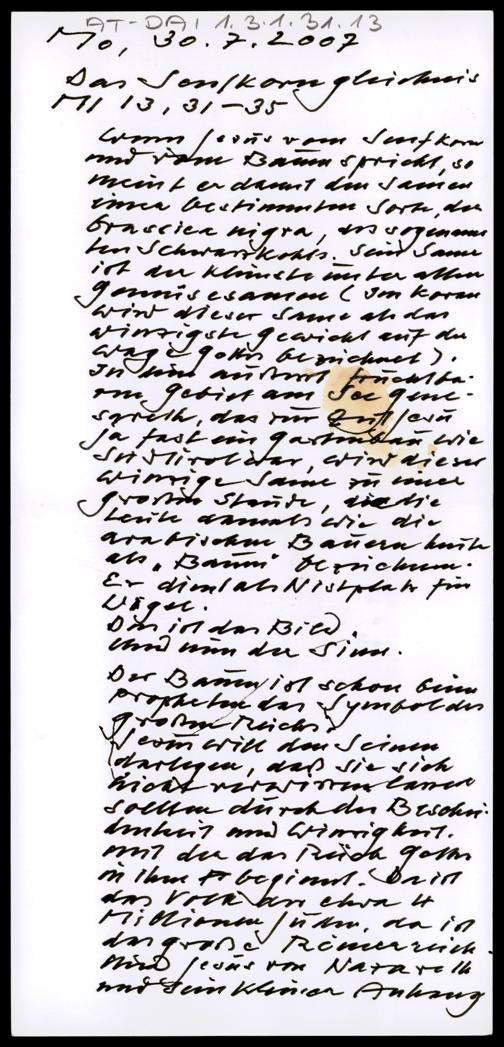 AT-DAI 1.3.1.31.13
Mo, 30.7.2007
Das Senfkorngleichnis
Mt 13,31-35
Wenn Jesus vom Senfkorn
und vom Baum spricht, so
meint er damit den Samen
einer bestimmten Sorte, der
brassica nigra, des sogenann
ten Schwarzkohls. Sein Same
ist der kleinste unter allen
Gemüsesamen (Im Koran
wird dieser Same als das
winzigste Gewicht auf der
Wage Gottes bezeichnet).
In dem äußerst fruchtba-
ren Gebiet am See Gene-
sareth, das zur Zeit Jesu
ja fast ein Gartenbau wie
Südtirol war, wird dieser
winzige Same zu einer
großen Staude, die die
Leute damals wie die
arabischen Bauern heute
als "Baum" bezeichnen.
Er dient als Nistplatz für
Vögel.
Das ist das Bild.
Und nun der Sinn.
Der Baum ist schon beim
Propheten das Symbol des
großen Reichs.
Jesus will den Seinen
darlegen, daß sie sich
nicht verwirren lassen
sollen durch die Beschei-
denheit und Winzigkeit.
mit der das Reich Gottes
in ihm beginnt. Da ist
das Volk der etwa 4
Millionen Juden, da ist
das große Römerreich.
Und Jesus von Nazareth
und sein kleiner Anhang